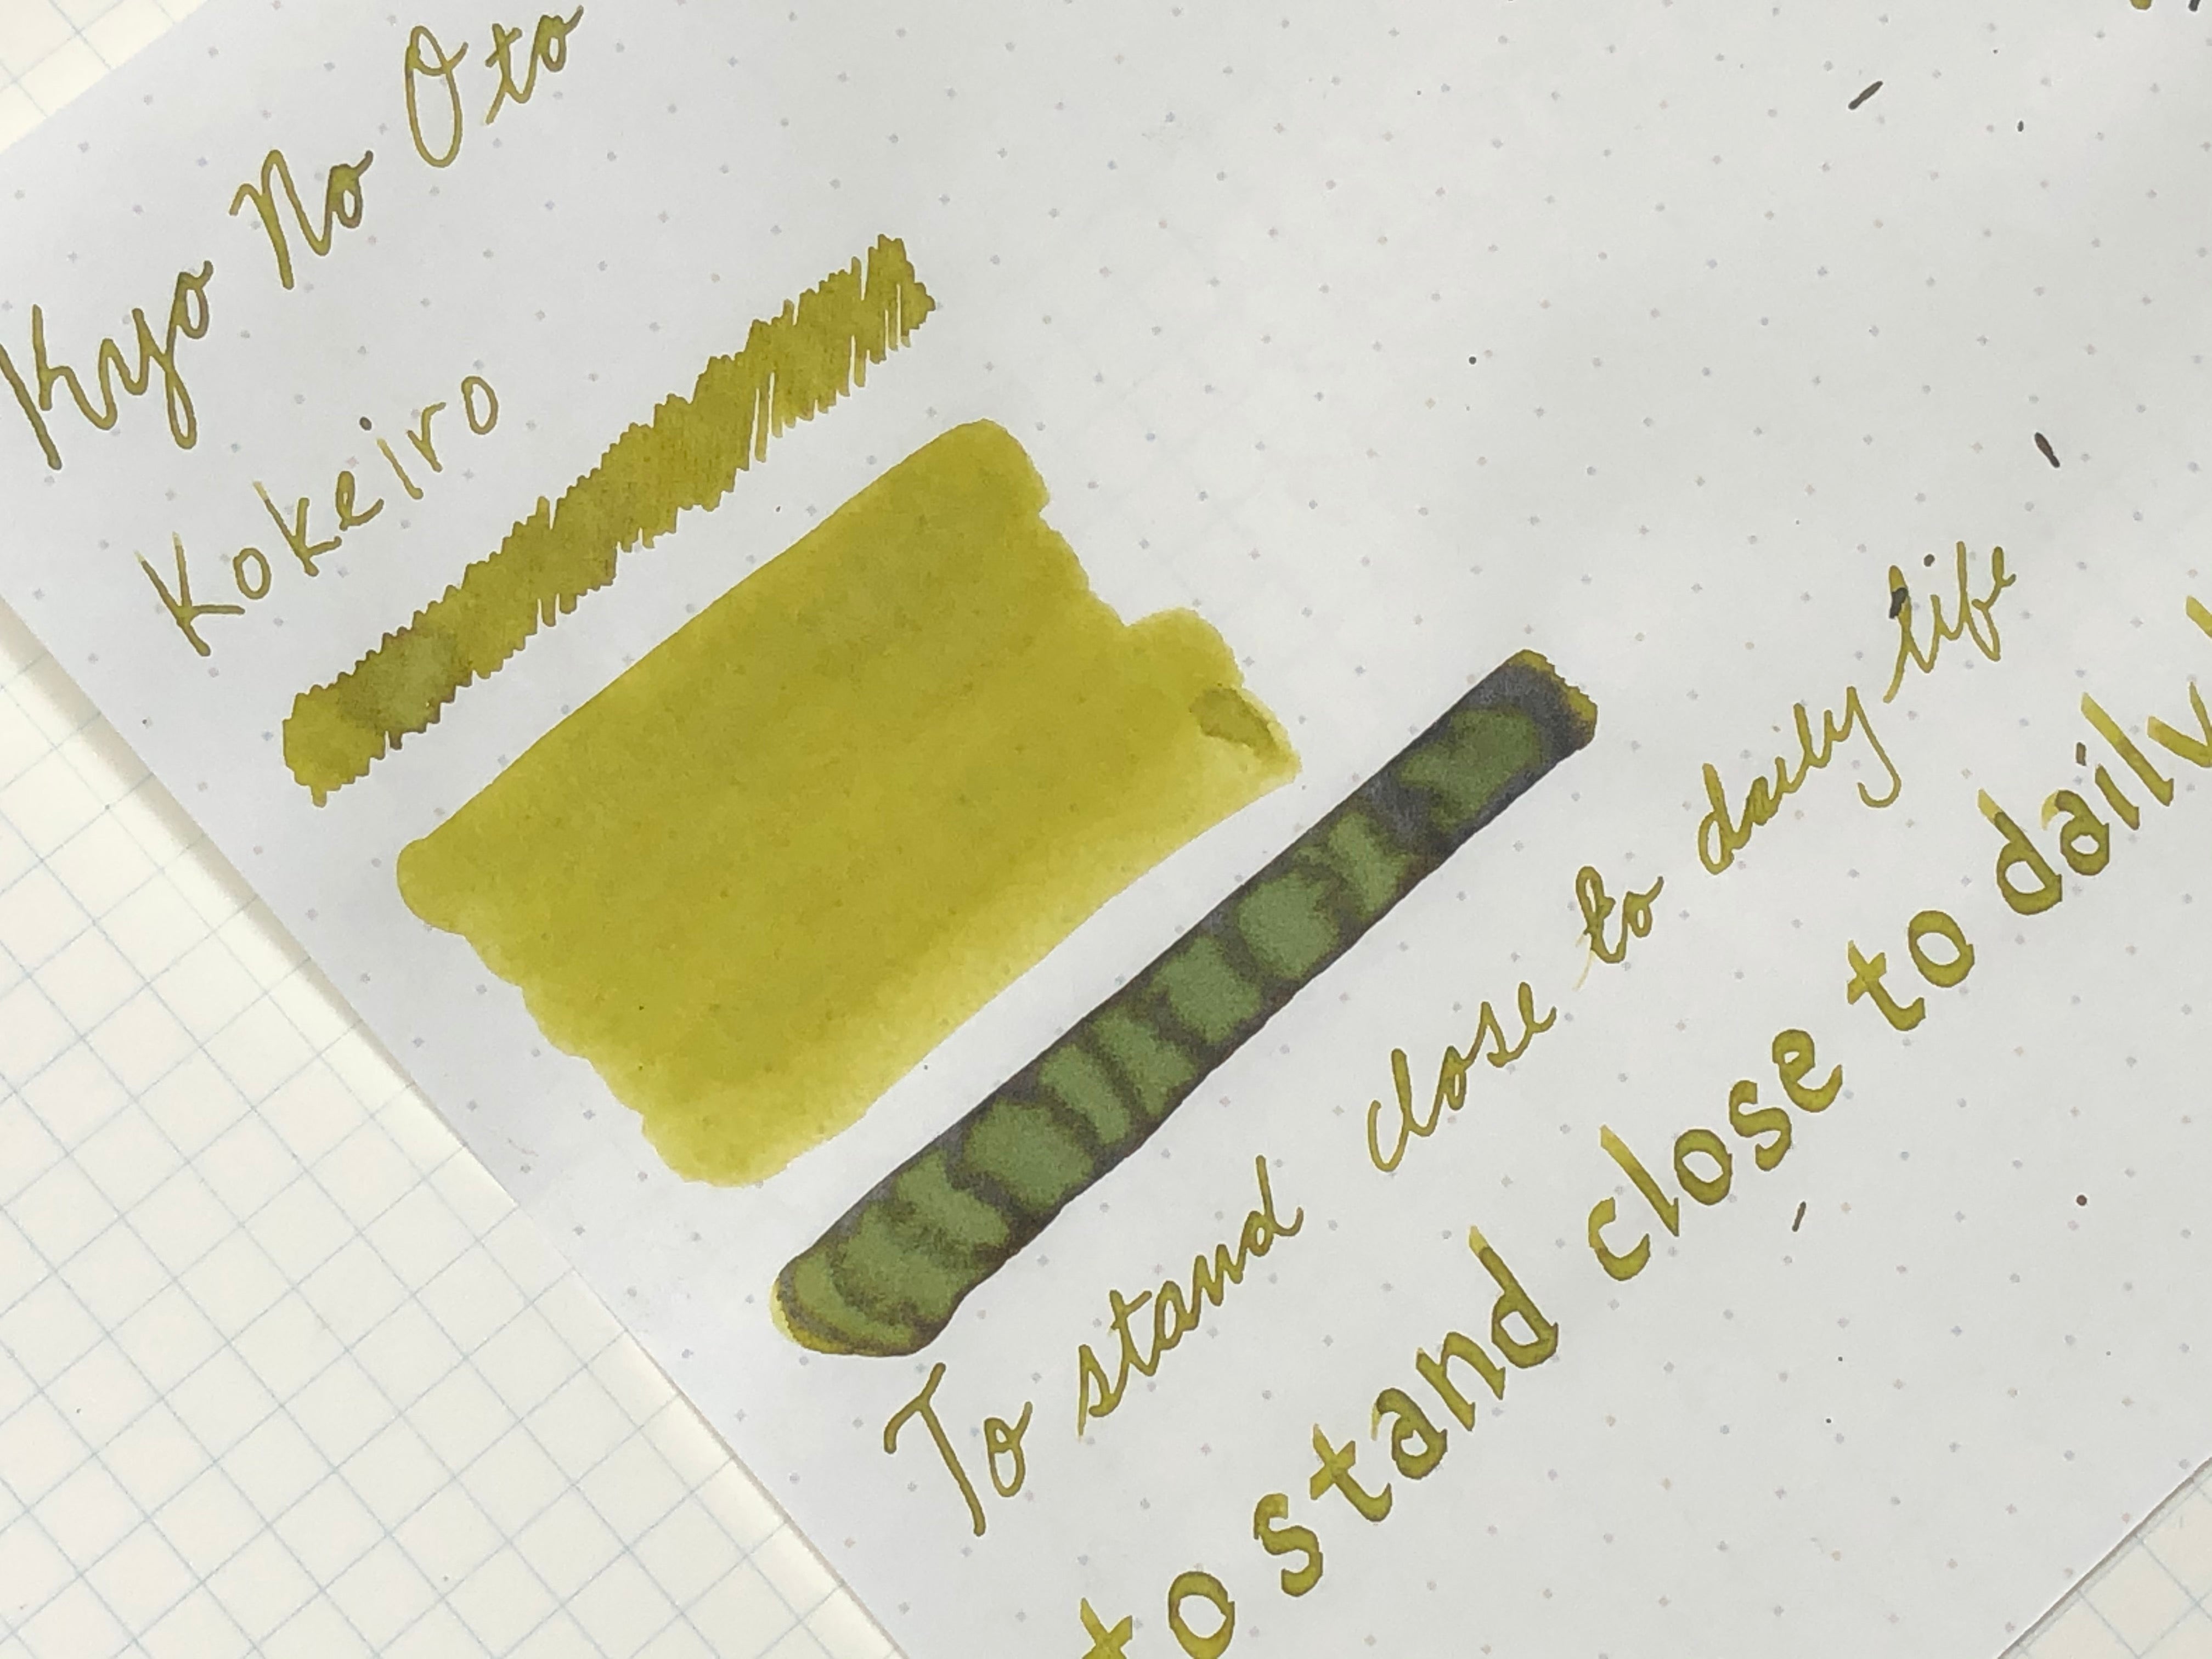 Kyo No Oto
Kokeiro
To stand close to daily life
to stand close to daily